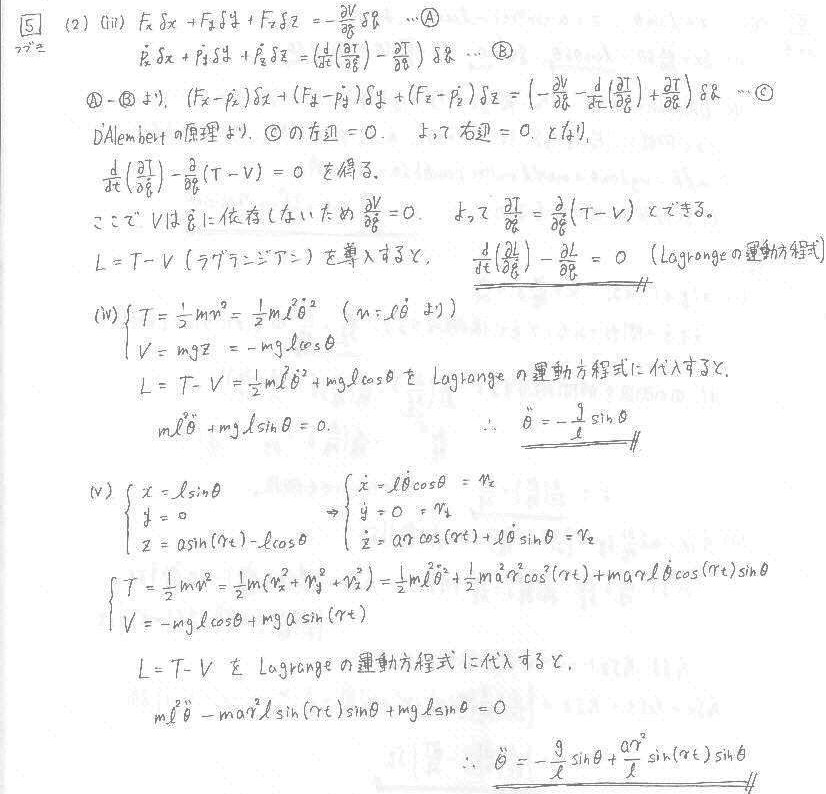 5 (2) (iii) Fxδx + Fyδy + Fzδz = -∂V/∂q δq … Ⓐ
つづき ṗxδx + ṗyδy + ṗzδz = (d/dt(∂T/∂q̇) - ∂T/∂q) δq … Ⓑ
Ⓐ-Ⓑより, (Fx-ṗx)δx + (Fy-ṗy)δy + (Fz-ṗz)δz = (-∂V/∂q - d/dt(∂T/∂q̇) + ∂T/∂q) δq … Ⓒ
D'Alembertの原理より, Ⓒの左辺=0. よって右辺=0. となり,
d/dt(∂T/∂q̇) - ∂/∂q(T-V) = 0 を得る。
ここで Vはq̇に依存しないため ∂V/∂q̇ = 0. よって ∂T/∂q̇ = ∂/∂q̇(T-V) とできる。
L = T-V (ラグランジアン) を導入すると, d/dt(∂L/∂q̇) - ∂L/∂q = 0 (Lagrangeの運動方程式)
(iv) { T = 1/2 mv² = 1/2 ml²θ̇² (v=lθ̇ より)
V = mgz = -mglcosθ
L = T-V = 1/2 ml²θ̇² + mglcosθ を Lagrangeの運動方程式に代入すると,
ml²θ̈ + mglsinθ = 0. ∴ θ̈ = -g/l sinθ
(v) { x = lsinθ ⇒ { ẋ = lθ̇cosθ = vx
y = 0 ẏ = 0 = vy
z = asin(rt) - lcosθ ż = ar cos(rt) + lθ̇sinθ = vz
{ T = 1/2 mv² = 1/2 m(vx² + vy² + vz²) = 1/2 ml²θ̇² + 1/2 ma²r²cos²(rt) + marlθ̇cos(rt)sinθ
V = -mglcosθ + mgasin(rt)
L = T-V を Lagrangeの運動方程式に代入すると,
ml²θ̈ - mar²lsin(rt)sinθ + mglsinθ = 0
∴ θ̈ = -g/l sinθ + ar²/l sin(rt)sinθ